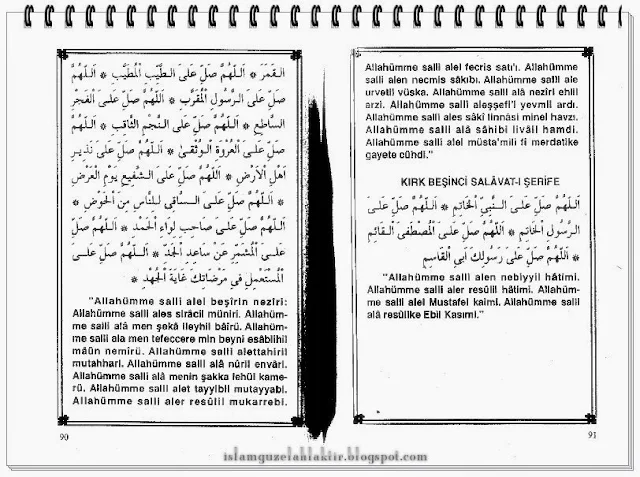 الْقَمَرَ * اَللّٰهُمَّ صَلِّ عَلَى الطَّيِّبِ الْمُطَيَّبِ * اَللّٰهُمَّ
صَلِّ عَلَى الرَّسُولِ الْمُقَرَّبِ * اَللّٰهُمَّ صَلِّ عَلَى الْفَجْرِ
السَّاطِعِ * اَللّٰهُمَّ صَلِّ عَلَى النَّجْمِ الثَّاقِبِ * اَللّٰهُمَّ
صَلِّ عَلَى الْعُرْوَةِ الْوُثْقٰى * اَللّٰهُمَّ صَلِّ عَلٰى نَذِيرِ
اَهْلِ الْاَرْضِ * اَللّٰهُمَّ صَلِّ عَلَى الشَّفِيعِ يَوْمَ الْعَرْضِ
* اَللّٰهُمَّ صَلِّ عَلَى السَّاقِى لِلنَّاسِ مِنَ الْحَوْضِ *
اَللّٰهُمَّ صَلِّ عَلٰى صَاحِبِ لِوَاءِ الْحَمْدِ * اَللّٰهُمَّ صَلِّ
عَلَى الْمُشَمِّرِ عَنْ سَاعِدِ الْجِدِّ * اَللّٰهُمَّ صَلِّ عَلَى
الْمُسْتَعْمِلِ فِي مَرْضَاتِكَ غَايَةَ الْجُهْدِ *
"Allahümme salli alel beşîrin nezîri:
Allahümme salli ales sirâcil müniri. Allahüm-
me salli alâ men şekâ ileyhil bâîrû. Allahüm-
me salli ala men tefeccere min beyni esâbîihil
mâün nemîrü. Allahümme salli alettahiril
mutahhari. Allahümme salli alâ nûril envâri.
Allahümme salli alâ menin şakka lehül kame-
rü. Allahümme salli alet tayyibil mutayyabi.
Allahümme salli aler resûlil mukarrebi.
90
Allahümme salli alel fecris satı'ı. Allahümme
salli alen necmis sâkıbi. Allahümme salli ale
urvetil vüska. Allahümme salli alâ nezîri ehlil
arzi. Allahümme salli aleşşefi'i yevmil ardı.
Allahümme salli ales sâkî linnâsi minel havzı.
Allahümme salli alâ sâhibi livâil hamdi.
Allahümme salli alel müsta'mili fi merdatike
gayete cühdi."
KIRK BEŞİNCİ SALÂVAT-I ŞERİFE
اَللّٰهُمَّ صَلِّ عَلَى النَّبِيِّ الْخَاتِمِ * اَللّٰهُمَّ صَلِّ عَلَى
الرَّسُولِ الْخَاتِمِ * اَللّٰهُمَّ صَلِّ عَلَى الْمُصْطَفَى الْقَائِمِ
* اَللّٰهُمَّ صَلِّ عَلٰى رَسُولِكَ اَبِي الْقَاسِمِ *
"Allahümme salli alen nebiyyil hâtimi.
Allahümme salli aler resûlil hâtimi. Allahüm-
me salli alel Mustafel kaimi. Allahümme salli
alâ resûlike Ebil Kasımi."
91
islamguzelahlaktir.blogspot.com